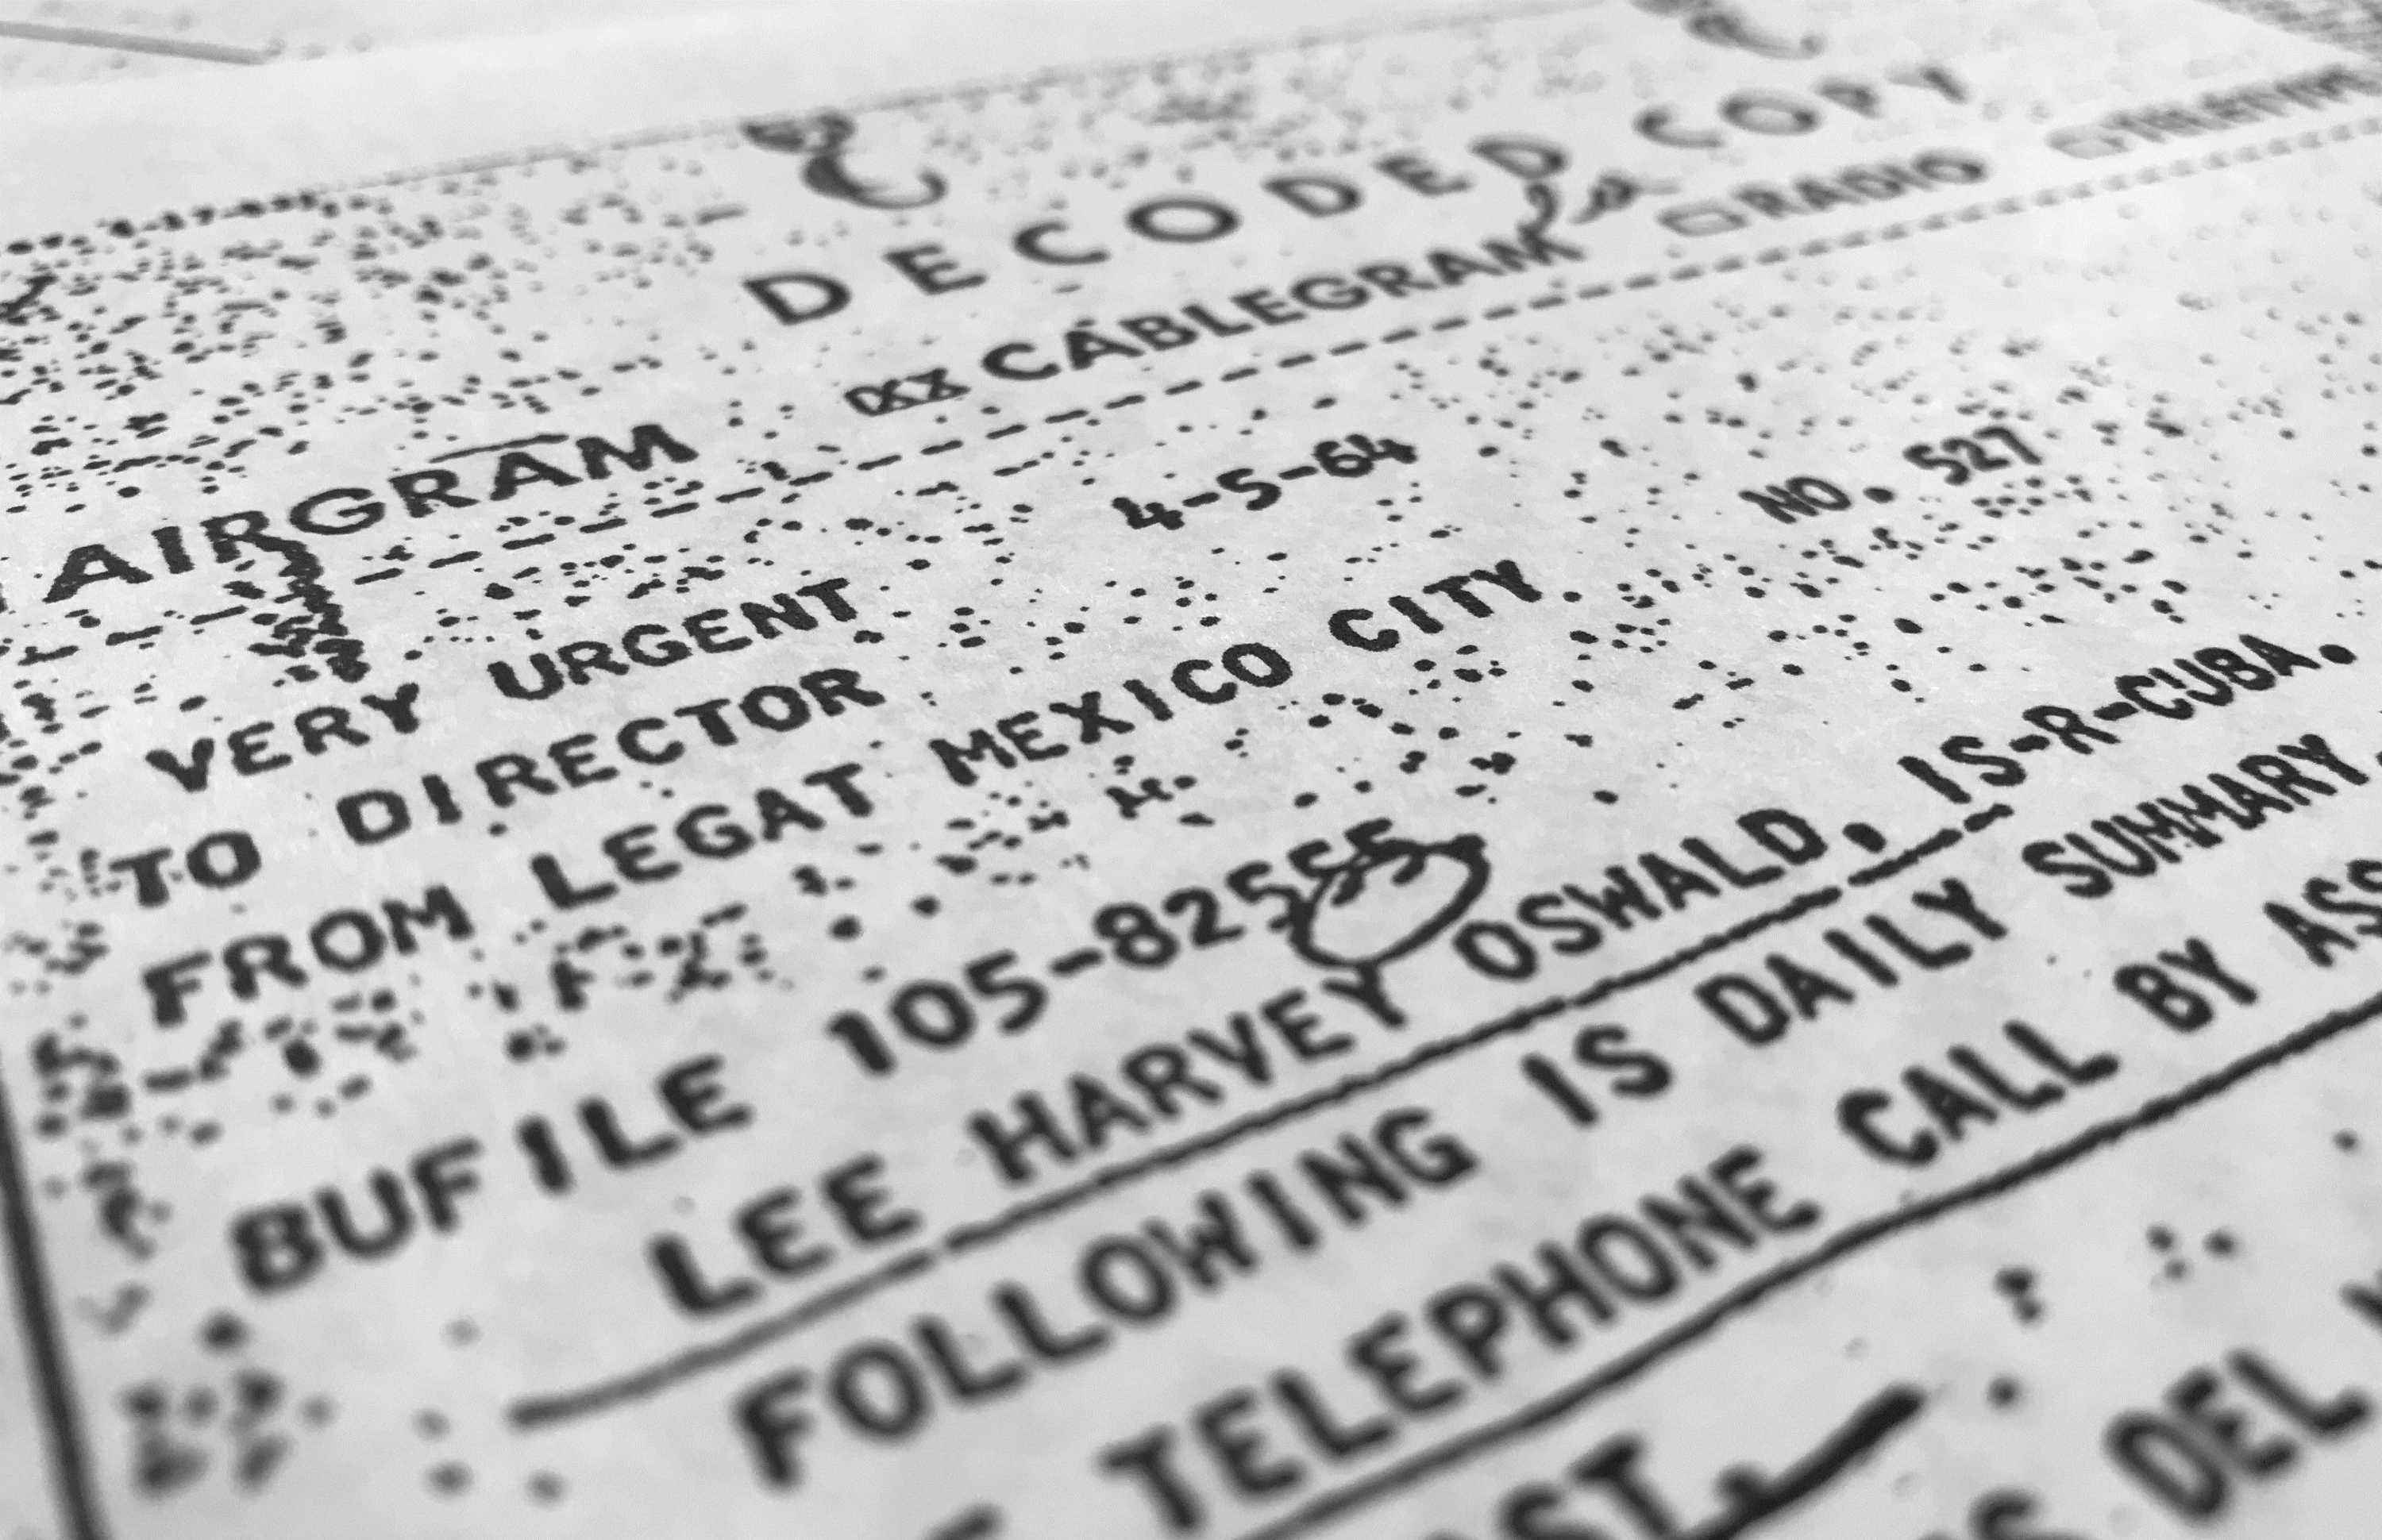 DECODED COPY
AIRGRAM CABLEGRAM RADIO TELETYPE
VERY URGENT 4-5-64 NO. 527
TO DIRECTOR
FROM LEGAT MEXICO CITY
BUFILE 105-82555
LEE HARVEY OSWALD, IS-R-CUBA.
FOLLOWING IS DAILY SUMMARY.
TELEPHONE CALL BY
DEL